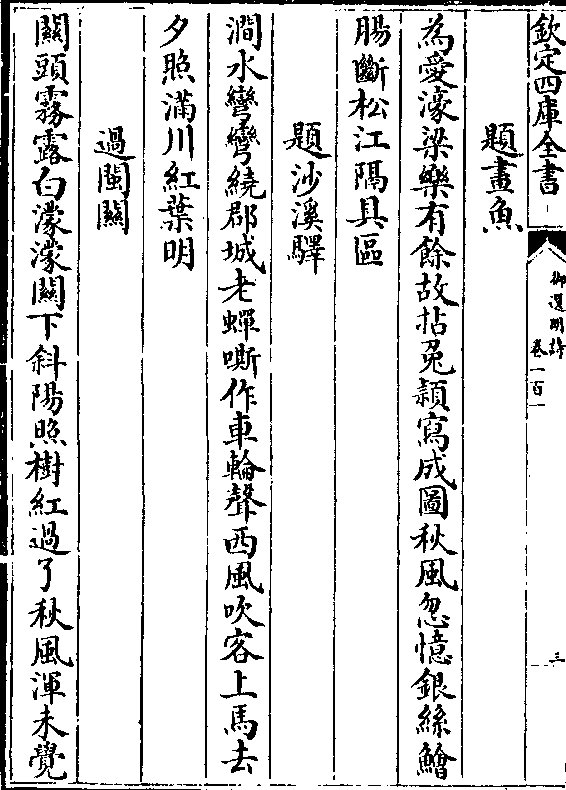 欽定四庫全書
御選明詩
卷一百一
三
題畫魚
為愛濠梁樂有餘故拈兎穎寫成圖秋風忽憶銀絲鱠
腸斷松江隔具區
題沙溪驛
澗水彎彎繞郡城老蟬嘶作車輪聲西風吹客上馬去
夕照滿川紅葉明
過閩關
關頭霧露白濛濛關下斜陽照樹紅過了秋風渾未覺